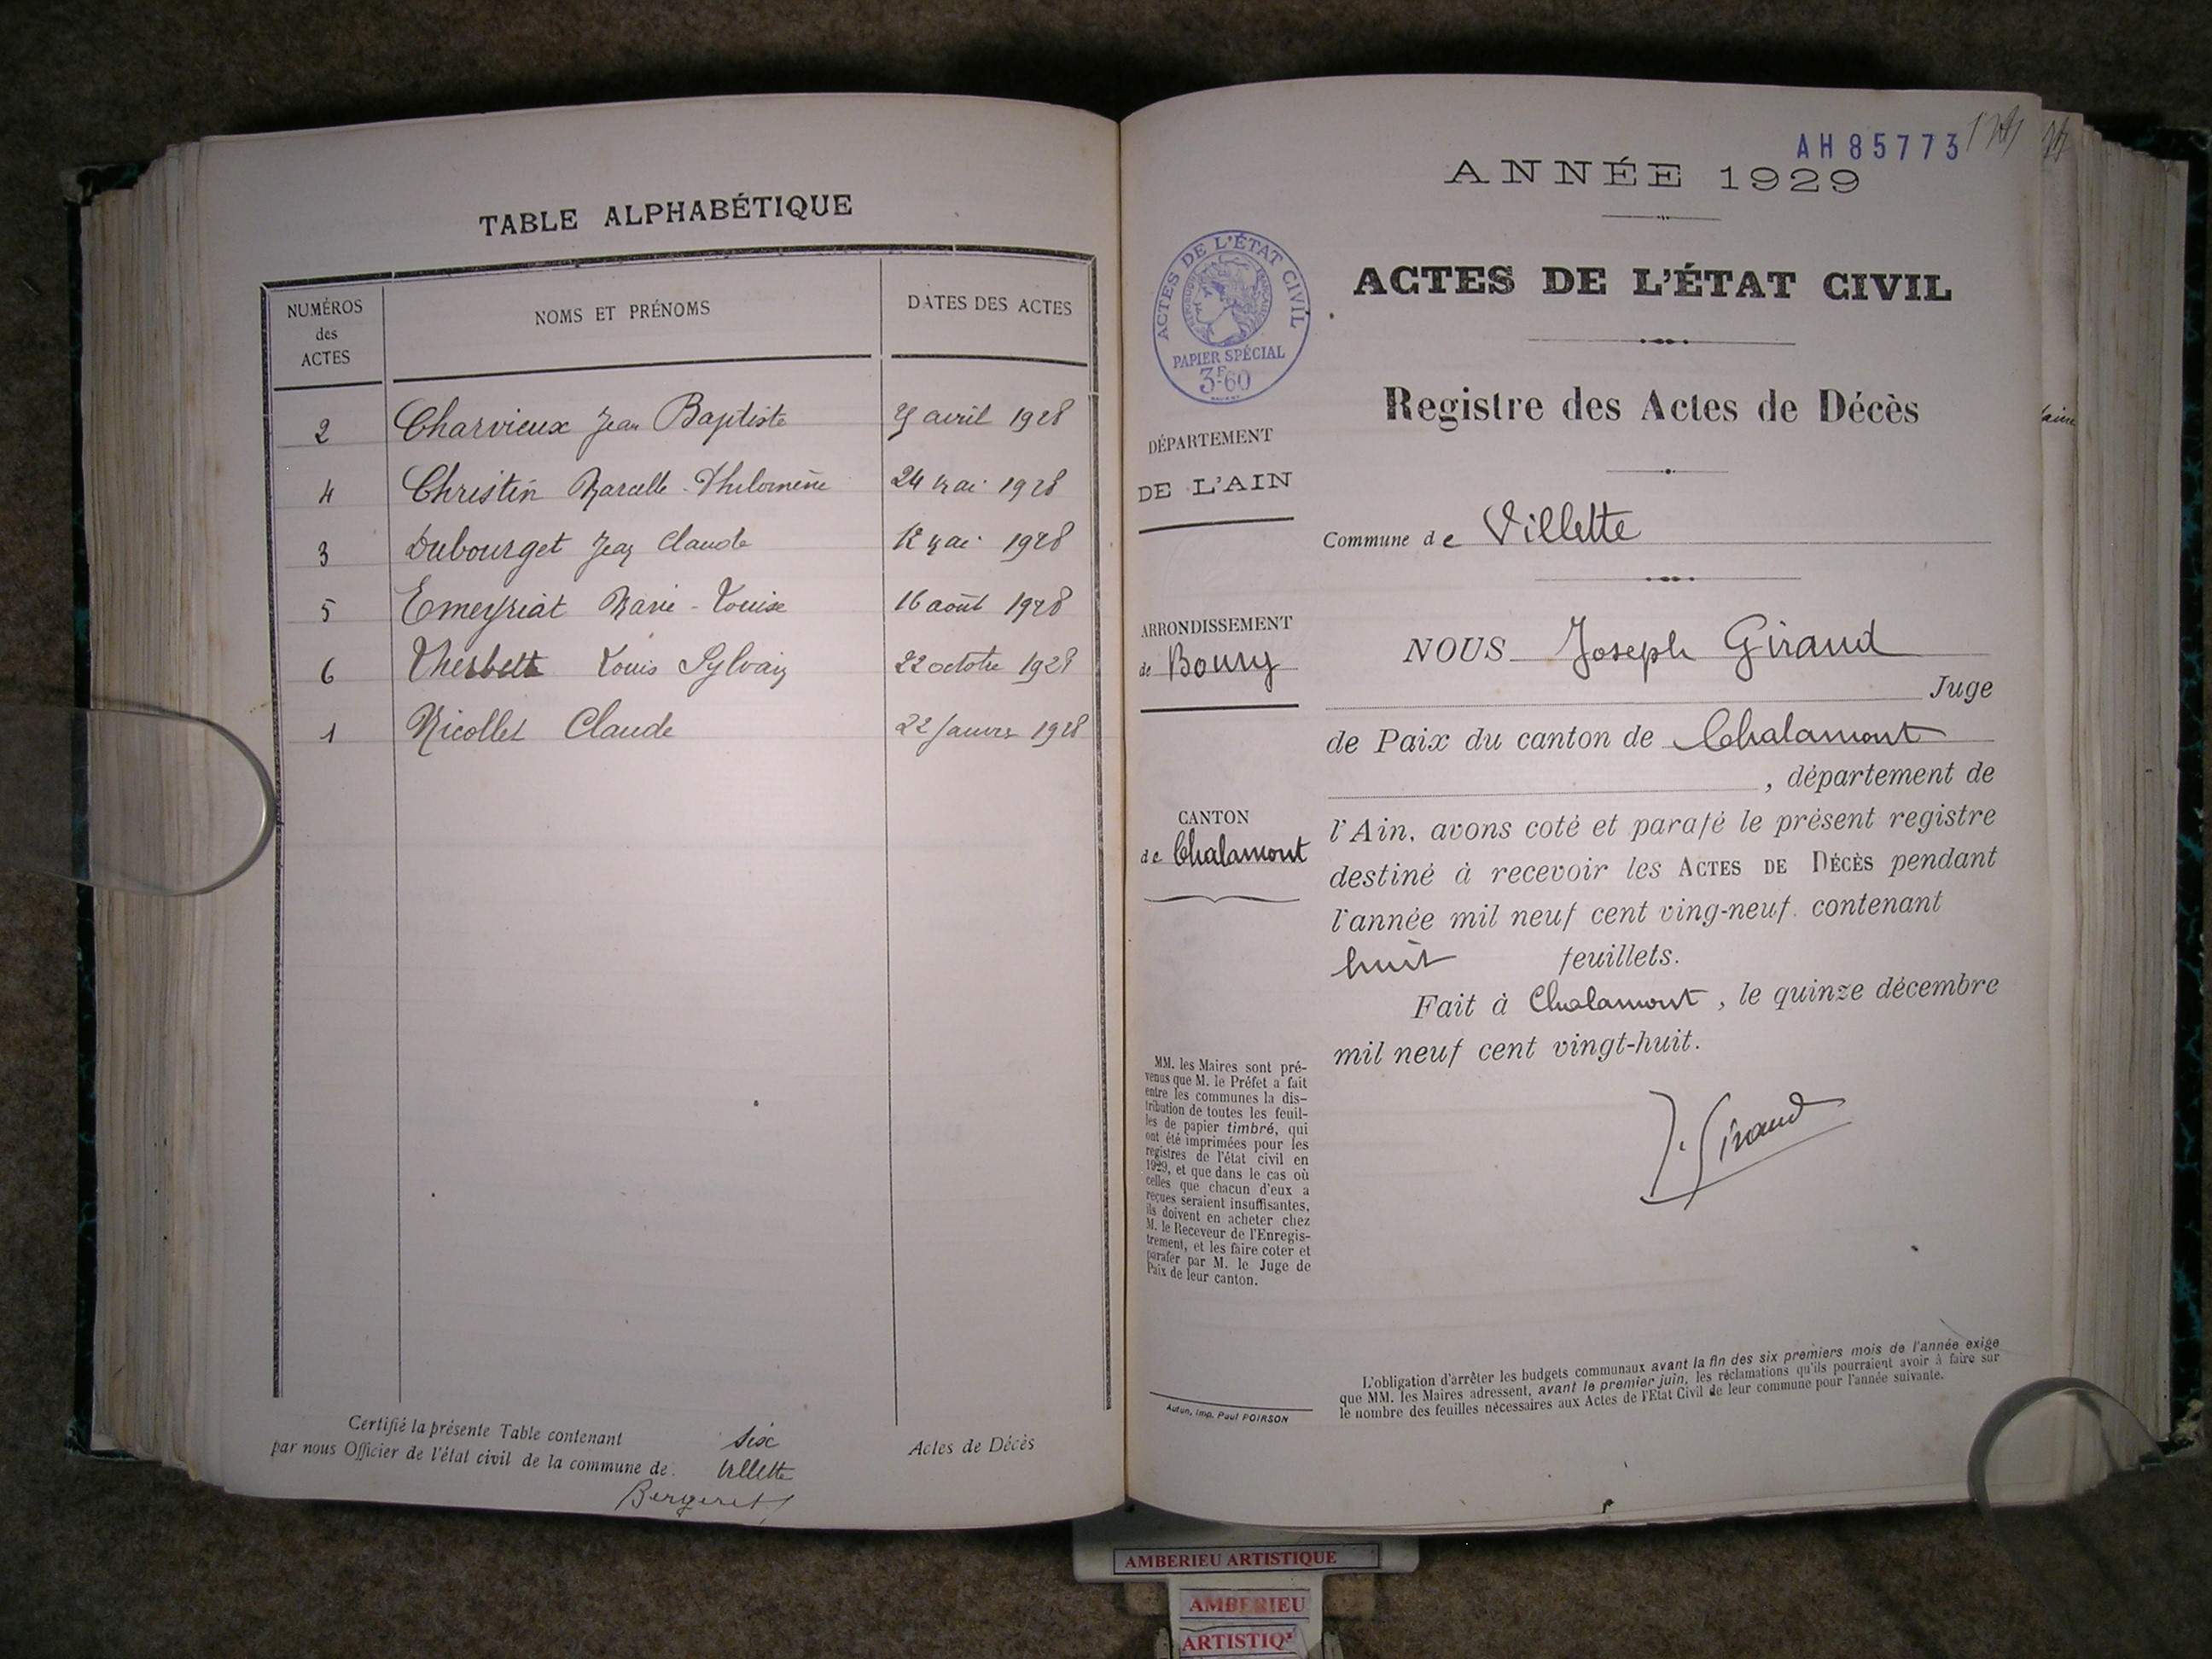 TABLE ALPHABÉTIQUE
NUMÉROS
des
ACTES
NOMS ET PRÉNOMS
DATES DES ACTES
2 Charvieux Jean Baptiste avril 1928
4 Christin Marcelle-Philomène 24 mai 1928
3 Dubourget Jean Claude 12 mai 1928
5 Emeyriat Marie-Louise 16 août 1928
6 Louis Sylvain 22 octobre 1928
1 Nicollet Claude 22 Janvier 1928
Certifié la présente Table contenant six Actes de Décès
par nous Officier de l'état civil de la commune de Villette
Bergeret
AH 85773
ANNÉE 1929
ACTES DE L'ÉTAT CIVIL
PAPIER SPÉCIAL
3F60
ACTES DE L'ÉTAT CIVIL
Registre des Actes de Décès
DÉPARTEMENT
DE L'AIN
Commune de Villette
ARRONDISSEMENT
de Bourg
CANTON
de Chalamont
NOUS Joseph Giraud
Juge
de Paix du canton de Chalamont
, département de
l'Ain, avons coté et parafé le présent registre
destiné à recevoir les ACTES DE DÉCÈS pendant
l'année mil neuf cent ving-neuf. contenant
huit feuillets.
Fait à Chalamont, le quinze décembre
mil neuf cent vingt-huit.
J. Giraud
MM. les Maires sont pré-
venus que M. le Préfet a fait
entre les communes la dis-
tribution de toutes les feuil-
les de papier timbré, qui
ont été imprimées pour les
registres de l'état civil en
1929, et que dans le cas où
celles que chacun d'eux a
reçues seraient insuffisantes,
ils doivent en acheter chez
M. le Receveur de l'Enregis-
trement, et les faire coter et
parafer par M. le Juge de
Paix de leur canton.
Autun, Imp. Paul POIRSON
L'obligation d'arrêter les budgets communaux avant la fin des six premiers mois de l'année exige
que MM. les Maires adressent, avant le premier juin, les réclamations qu'ils pourraient avoir à faire sur
le nombre des feuilles nécessaires aux Actes de l'Etat Civil de leur commune pour l'année suivante.
AMBERIEU ARTISTIQUE
AMBERIEU
ARTISTIQ